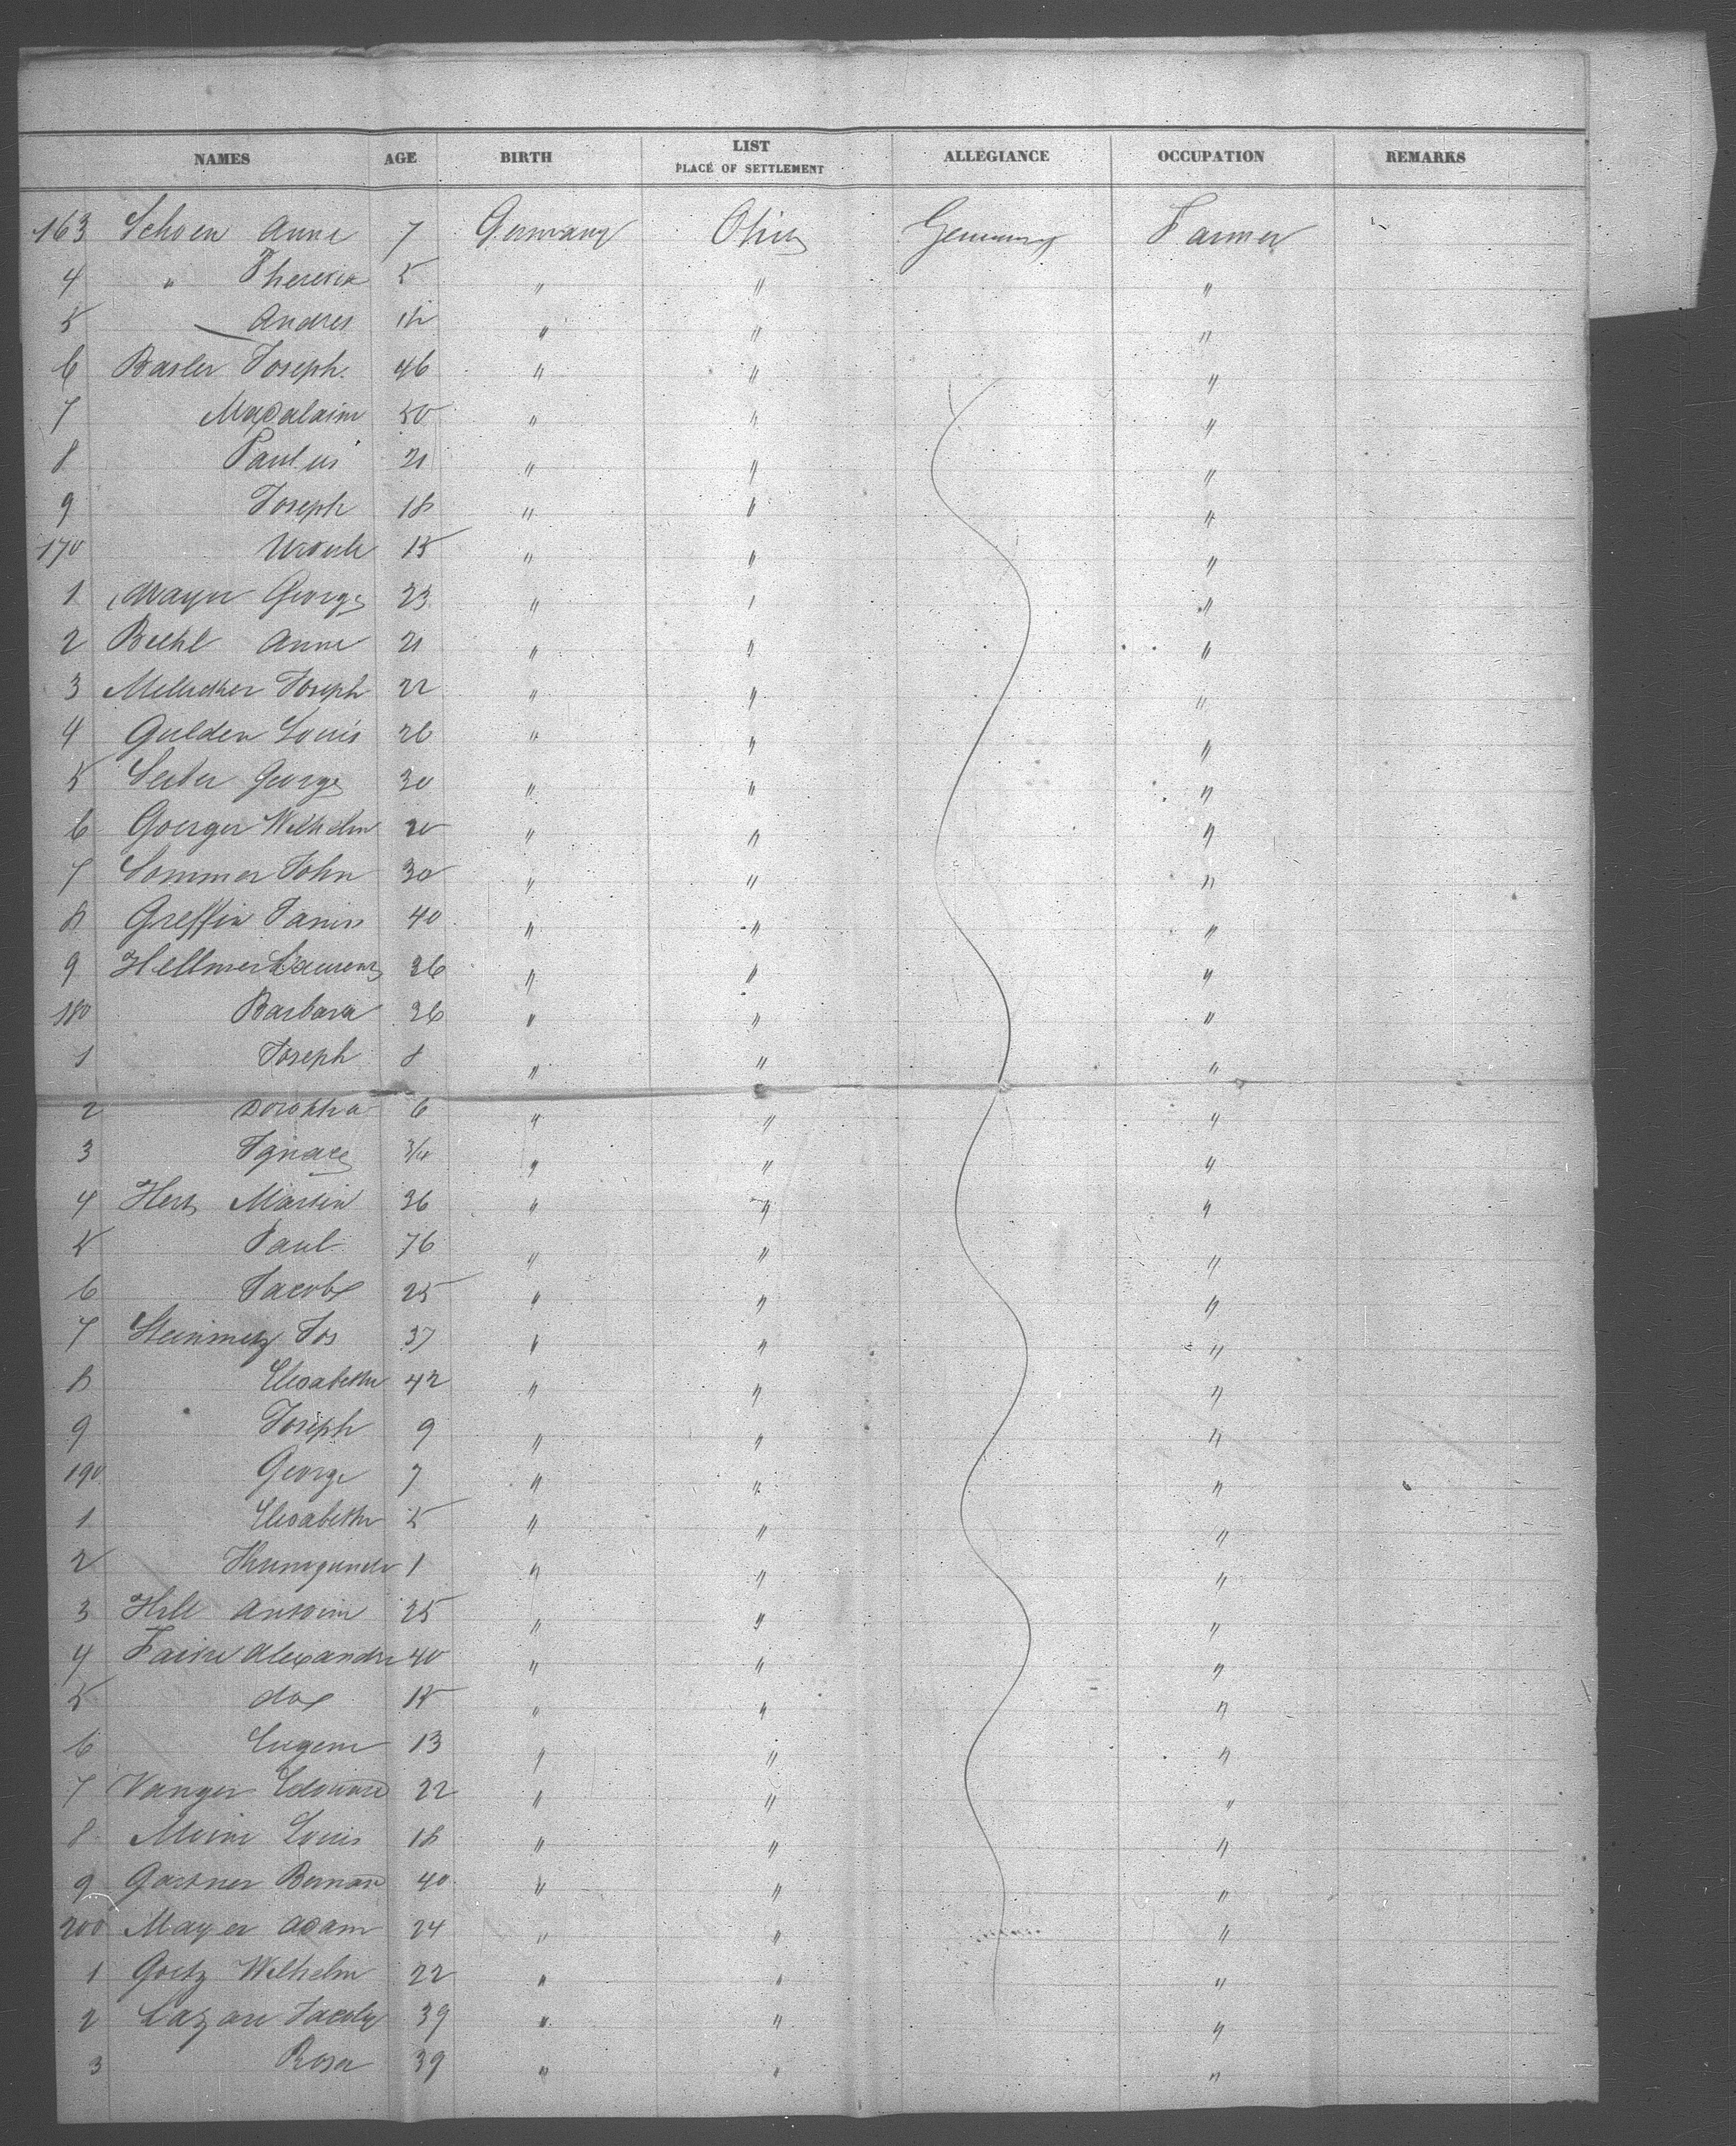 NAMES AGE BIRTH LIST PLACE OF SETTLEMENT ALLEGIANCE OCCUPATION REMARKS
163 Schoen Anne 7 Germany Ohio Germany Farmer
4 " Theresia 5 " " "
5 Andres 1½ " " "
6 Basler Joseph 46 " " "
7 Magdalaine 50 " " "
8 Paulus 21 " " "
9 Joseph 18 " " "
170 Ursule 15 " " "
1 Mayer George 23 " " "
2 Anne 21 " " "
3 Joseph 22 " " "
4 Gulden Louis 26 " " "
5 George 30 " " "
6 Goerger Wilhelm 20 " " "
7 Sommer John 30 " " "
8 Greffin 40 " " "
9 Hellmer Laurenz 36 " " "
180 Barbara 36 " " "
1 Joseph 8 " " "
2 Dorothea 6 " " "
3 Ignace 3/4 " " "
4 Hertz Martin 36 " " "
5 Paul 76 " " "
6 Jacob 25 " " "
7 Steinmetz Jos 37 " " "
8 Elisabetha 42 " " "
9 Joseph 9 " " "
190 George 7 " " "
1 Elisabetha 5 " " "
2 1 " " "
3 Hill Antoine 25 " " "
4 Alexandre 40 " " "
5 do 15 " " "
6 Eugene 13 " " "
7 Edouard 22 " " "
8 Louis 18 " " "
9 Gartner Bernard 40 " " "
200 Mayer Adam 24 " " "
1 Goetz Wilhelm 22 " " "
2 Lazare Jacob 39 " " "
3 Rosa 39 " " "